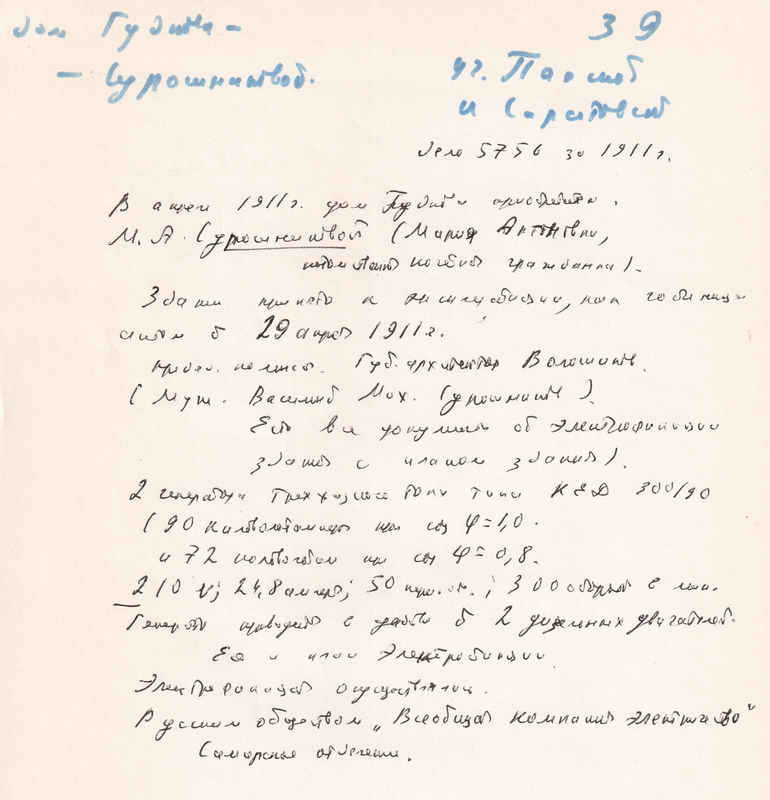 дом Гудина –
– Сурошниковой.
39
уг. Панской
и Саратовской
дело 5756 за 1911 г.
В 1911 г. дом приобретен.
М. А. Сурошниковой (Мария Антоновна,
гражданка).
Здание принято к эксплуатации, как гостиница
актом 29 апреля 1911 г.
Губ. архитектор
(Муж. Василий Мих. Сурошников).
Есть все документы об электрофикации
здания с планом здания).
2 генератора трехфазного тока типа 300/90
(90 киловольтампер при cos φ = 1,0.
и 72 при cos φ = 0,8.
210 v; 24,8 ампер; 50 ; 300 оборотов в мин.
Генераторы приводятся в 2 дизельных двигателей.
Есть и план электростанции
Электрофикация осуществлена.
Русским обществом „Всеобщая компания электричества"
Самарское отделение.